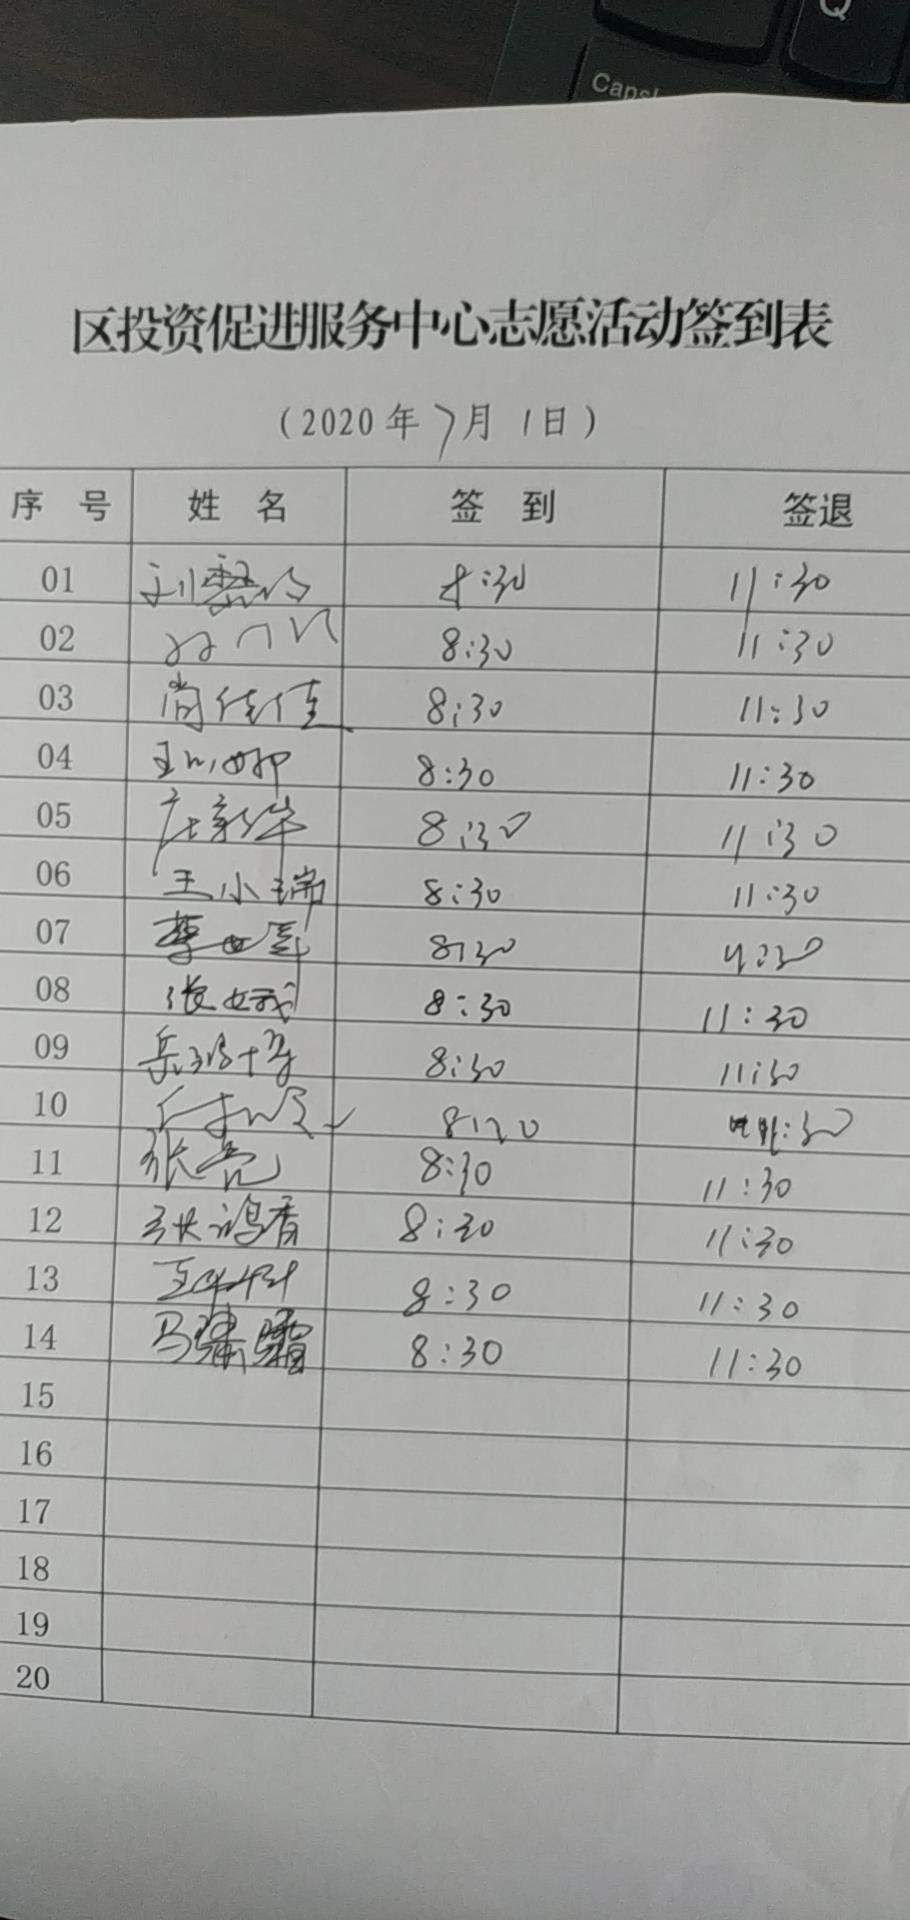 Q
Caps
区投资促进服务中心志愿活动签到表
（2020年7月1日）
序 号 姓 名 签 到 签退
01 8:30 11:30
02 8:30 11:30
03 尚佳佳 8:30 11:30
04 8:30 11:30
05 8:30 11:30
06 王小瑞 8:30 11:30
07 8:30
08 张 8:30 11:30
09 8:30 11:30
10 :30
11 张亮 8:30 11:30
12 张鸿香 8:30 11:30
13 8:30 11:30
14 马 8:30 11:30
15
16
17
18
19
20